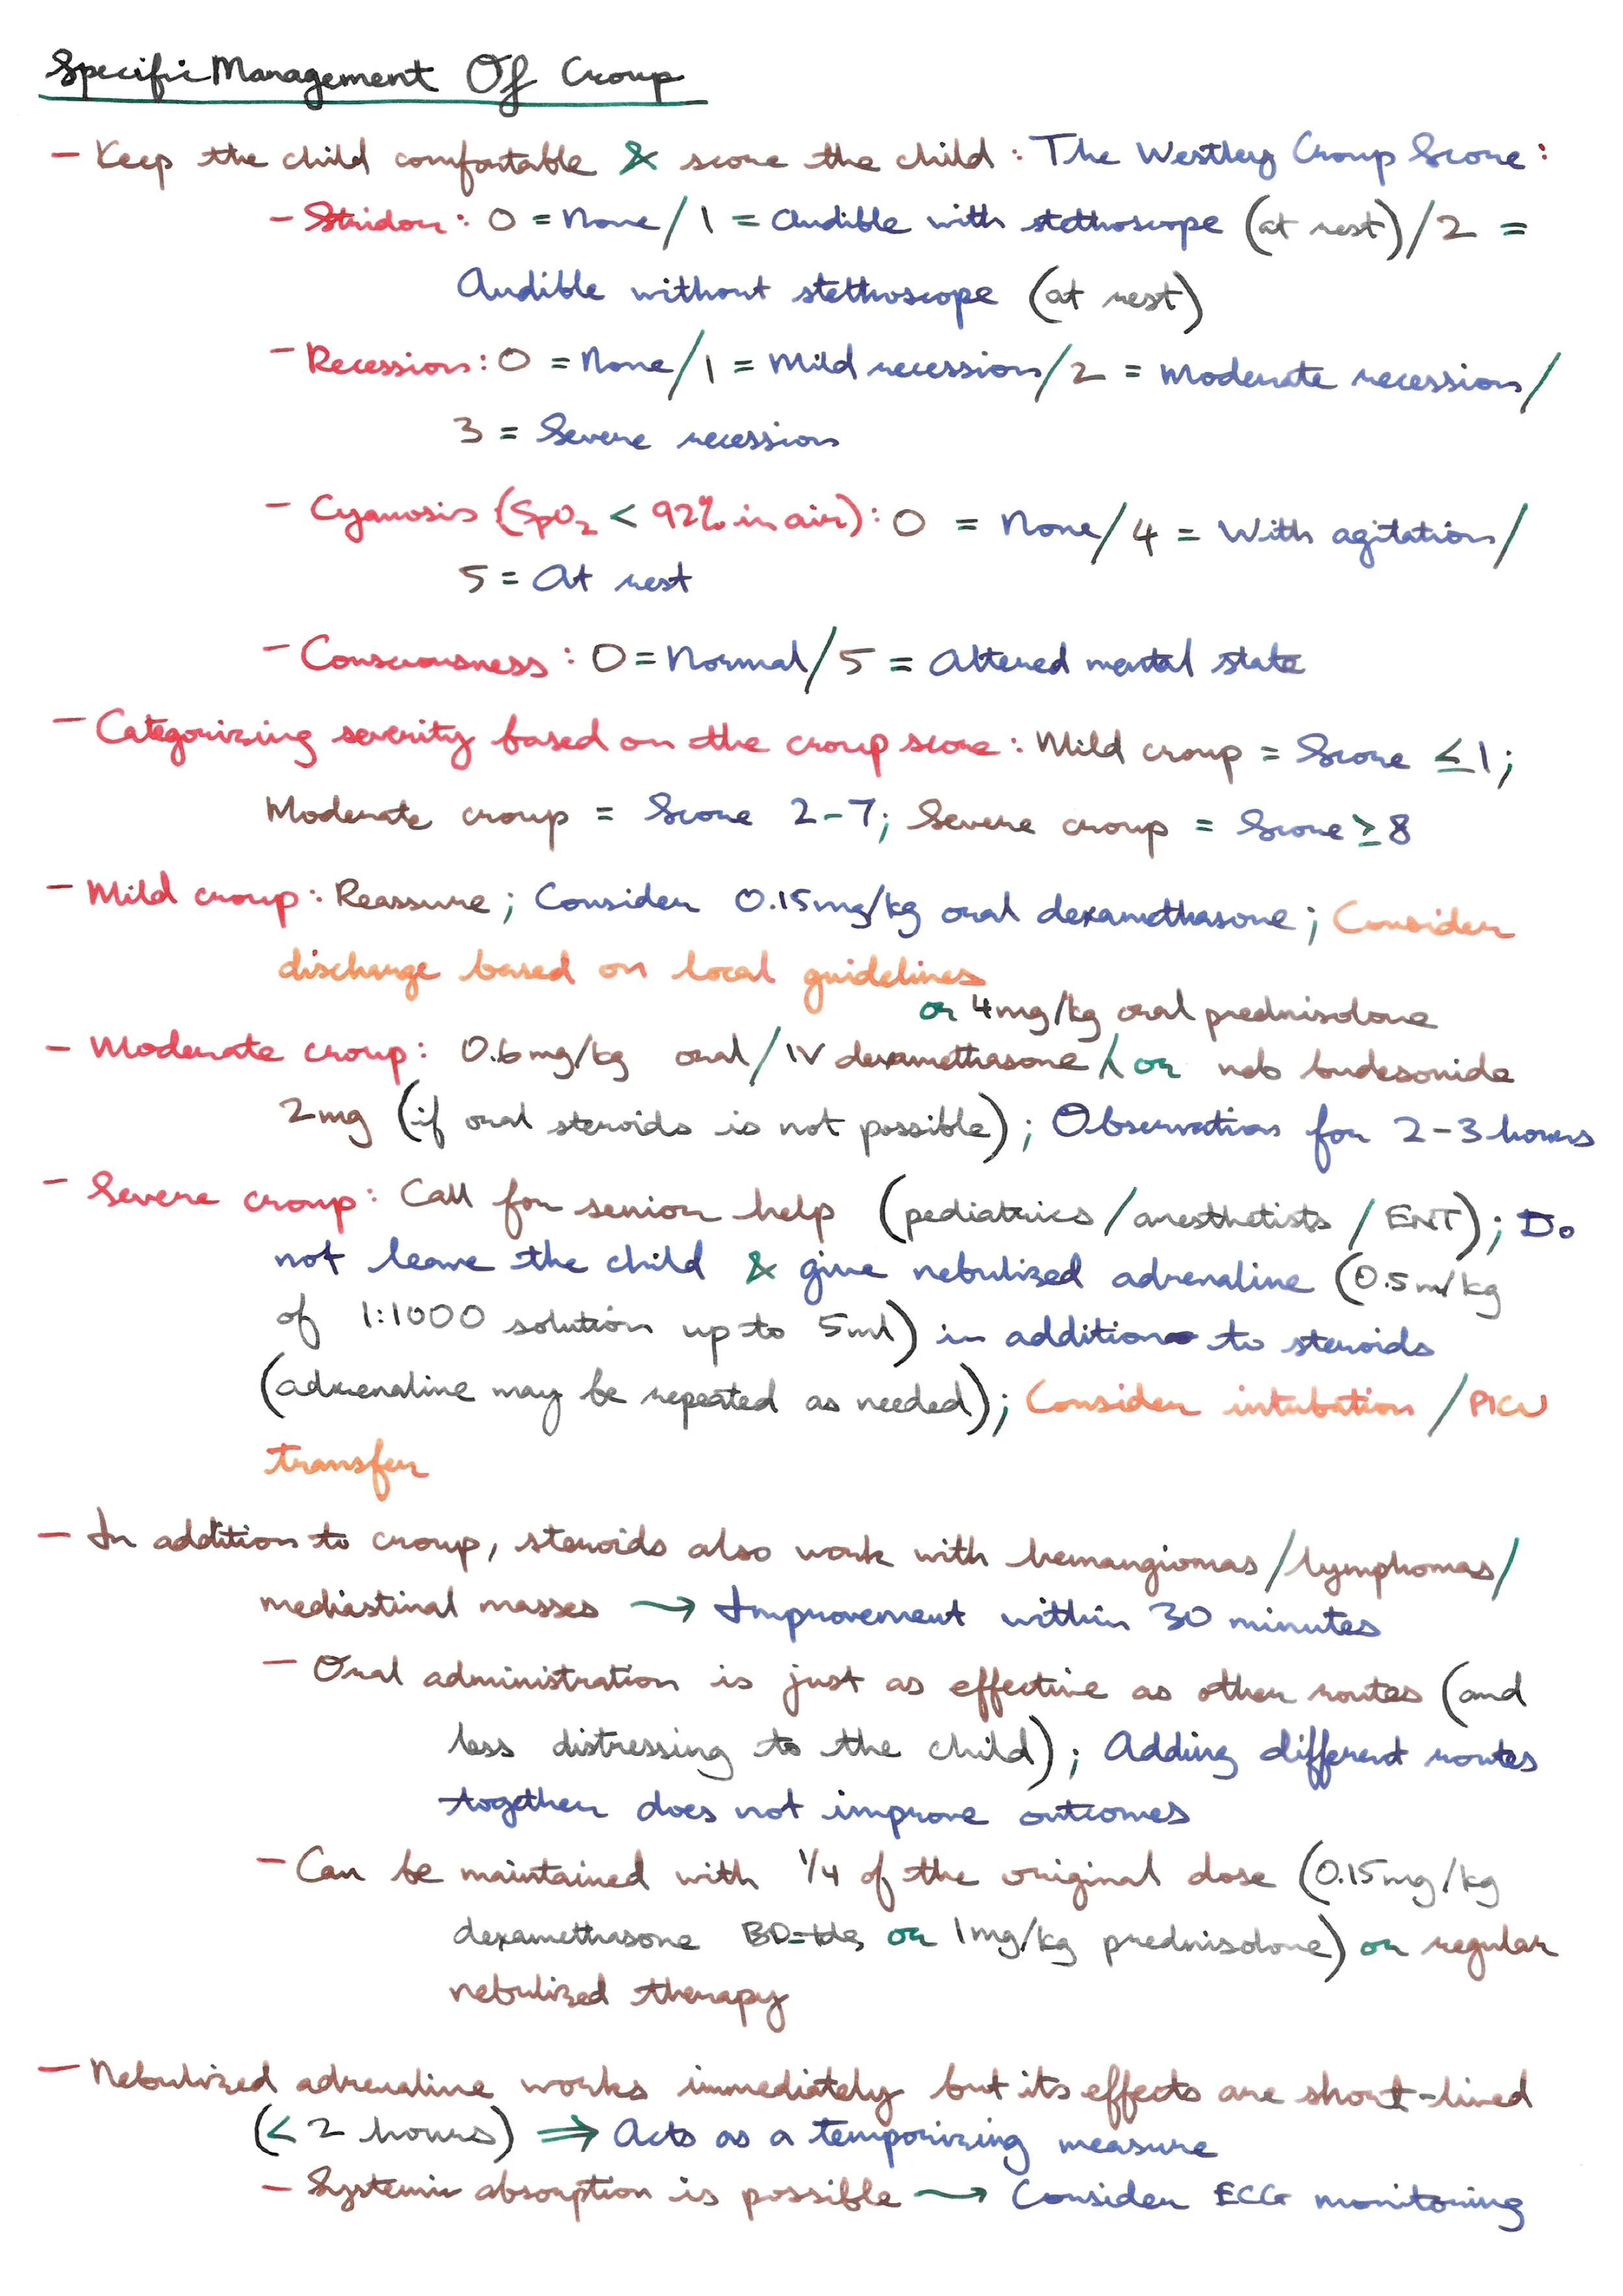 Specific Management Of Croup
- Keep the child comfortable & score the child: The Westley Croup Score:
- Stridor: 0 = None/1 = Audible with stethoscope (at rest)/2 =
Audible without stethoscope (at rest)
- Recession: 0 = None/1 = Mild recession/2 = Moderate recession/
3 = Severe recession
- Cyanosis (SpO₂ < 92% in air): 0 = None/4 = With agitation/
5 = At rest
- Consciousness: 0 = Normal/5 = Altered mental state
- Categorizing severity based on the croup score: Mild croup = Score ≤ 1;
Moderate croup = Score 2-7; Severe croup = Score ≥ 8
- Mild croup: Reassure; Consider 0.15mg/kg oral dexamethasone; Consider
discharge based on local guidelines
or 4mg/kg oral prednisolone
- Moderate croup: 0.6mg/kg oral/IV dexamethasone / or neb budesonide
2mg (if oral steroids is not possible); Observation for 2-3 hours
- Severe croup: Call for senior help (pediatrics/anesthetists/ENT); Do
not leave the child & give nebulized adrenaline (0.5ml/kg
of 1:1000 solution up to 5ml) in addition to steroids
(adrenaline may be repeated as needed); Consider intubation/PICU
transfer
- In addition to croup, steroids also work with hemangiomas/lymphomas/
mediastinal masses → Improvement within 30 minutes
- Oral administration is just as effective as other routes (and
less distressing to the child); Adding different routes
together does not improve outcomes
- Can be maintained with 1/4 of the original dose (0.15mg/kg
dexamethasone BD-tds or 1mg/kg prednisolone) or regular
nebulized therapy
- Nebulized adrenaline works immediately but its effects are short-lived
(< 2 hours) ⇒ Acts as a temporizing measure
- Systemic absorption is possible → Consider ECG monitoring